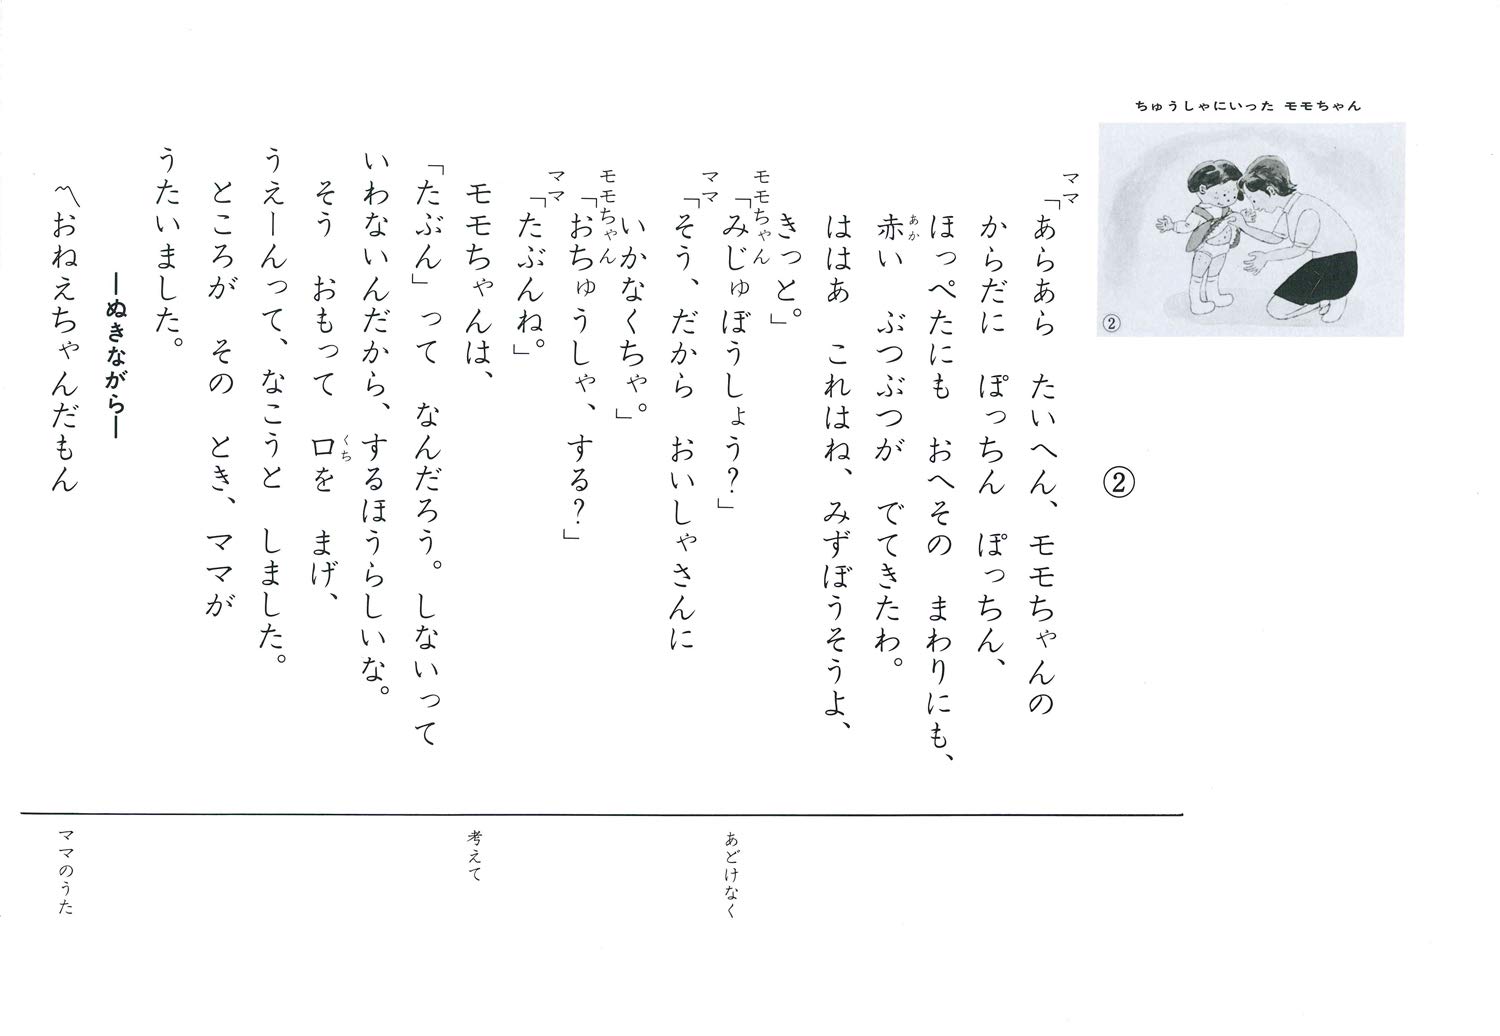 ちゅうしゃにいった モモちゃん
②
②
ママ
「あらあら たいへん、モモちゃんの
からだに ぽっちん ぽっちん、
ほっぺたにも おへその まわりにも、
赤い ぶつぶつが でてきたわ。
あか
ははあ これはね、みずぼうそうよ、
きっと。」
モモちゃん
「みじゅぼうしょう?」
ママ
「そう、だから おいしゃさんに
いかなくちゃ。」
モモちゃん
「おちゅうしゃ、する?」
ママ
「たぶんね。」
モモちゃんは、
「たぶん」って なんだろう。しないって
いわないんだから、するほうらしいな。
そう おもって 口を まげ、
くち
うえーんって、なこうと しました。
ところが その とき、ママが
うたいました。
―ぬきながら―
〽おねえちゃんだもん
あどけなく
考えて
ママのうた